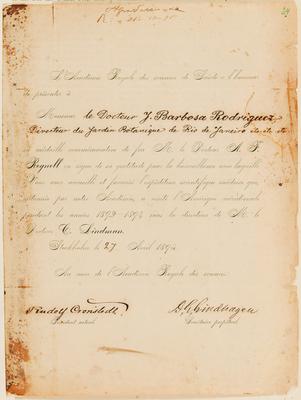 L'Académie Royale des sciences de Suède a l'honneur
de présenter à
Monsieur le Docteur J. Barbosa Rodriguez
Directeur du Jardin Botanique de Rio de Janeiro etc etc etc
sa médaille commémorative de feu M. le Docteur A. F.
Regnell en signe de sa gratitude pour la bienveillance avec laquelle
Vous avez accueilli et favorisé l'expédition scientifique suédoise qui,
par notre Académie, a visité l'Amérique méridionale
pendant les années 1892-1894 sous la direction de M. le
Docteur C. Lindman.
Stockholm le 27 Avril 1894
Au nom de l'Académie Royale des sciences:
Rudolf Cronstedt.
D. G. Lindhagen
Président actuel
Secrétaire perpétuel